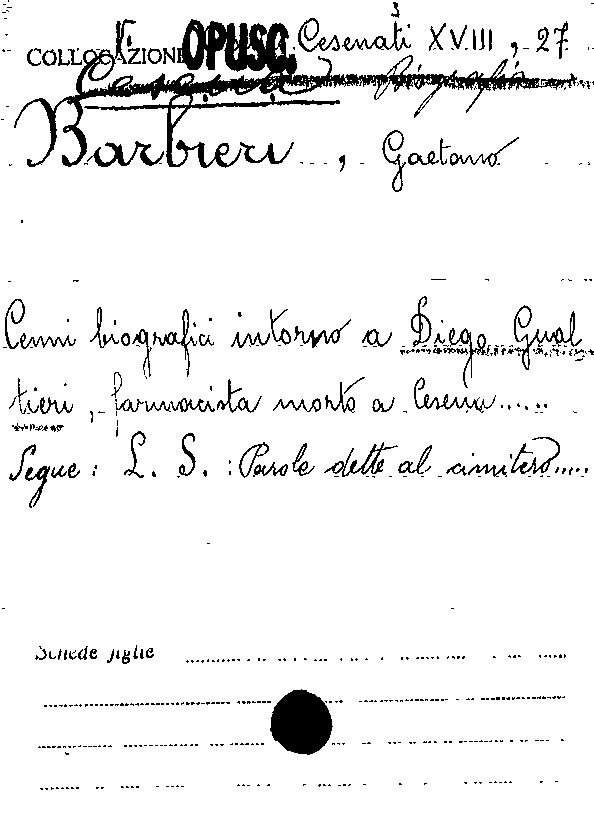 3
COLLOCAZIONE OPUSC. Cesenati XVIII, 27
Cesena Biografia
Barbieri, Gaetano
Cenni biografici intorno a Diego Gual
tieri, farmacista morto a Cesena......
Segue: L. S.: Parole dette al cimitero.....
Schede figlie